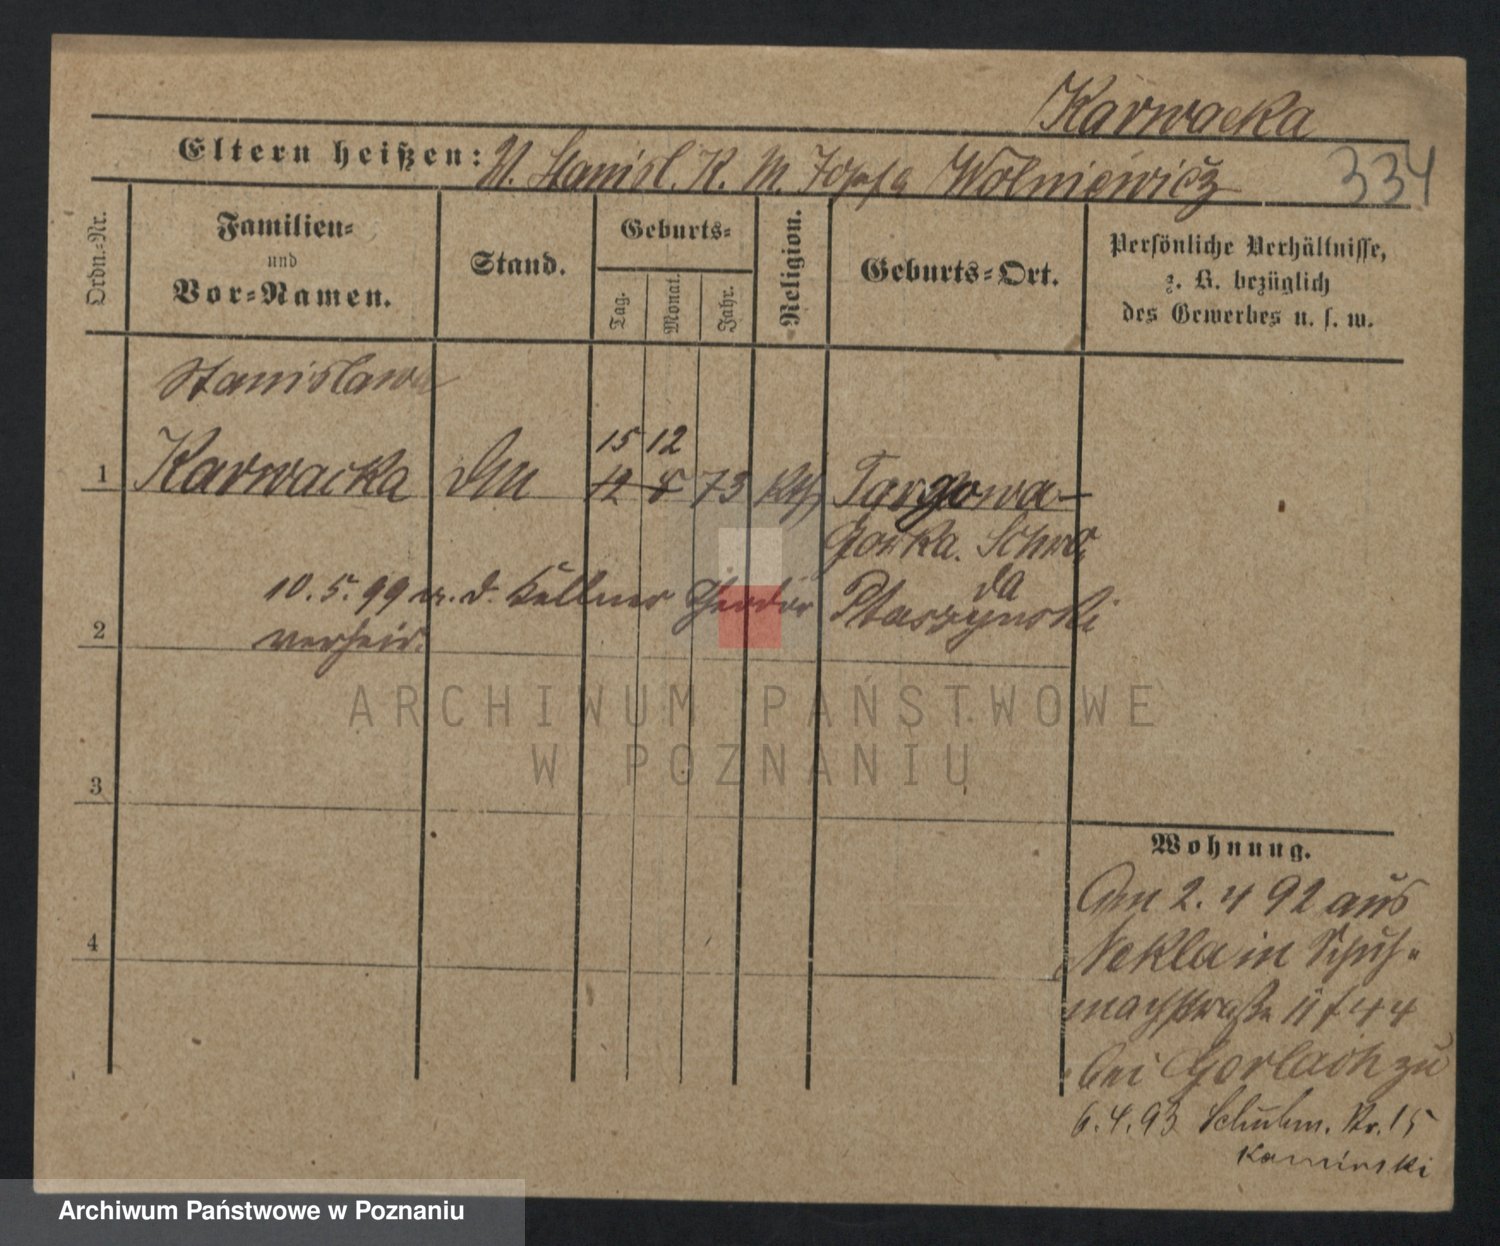 Karwacka
Eltern heißen: V. Stanisl. K. M. Zofia Wolniewicz 334
Ordn.-Nr.
Familien-
und
Vor-Namen.
Stand.
Geburts-
Tag.
Monat.
Jahr.
Religion.
Geburts-Ort.
Persönliche Verhältnisse,
z. B. bezüglich
des Gewerbes u. s. w.
Stanislawa
15 12
1 Karwacka 12 8 73 Kth Targowa-
Gorka. Schro
da
10.5.99 m. d. Kellner Theodor Ptaszynski
2 verheir.
ARCHIWUM PAŃSTWOWE
W POZNANIU
3
Wohnung.
Am 2. 4 92 aus
4 Nekla in Schuh-
machstraße 11 f 44
bei Gorlach zu
6.4.93 Schuhm. Str. 15
Kaminski
Archiwum Państwowe w Poznaniu